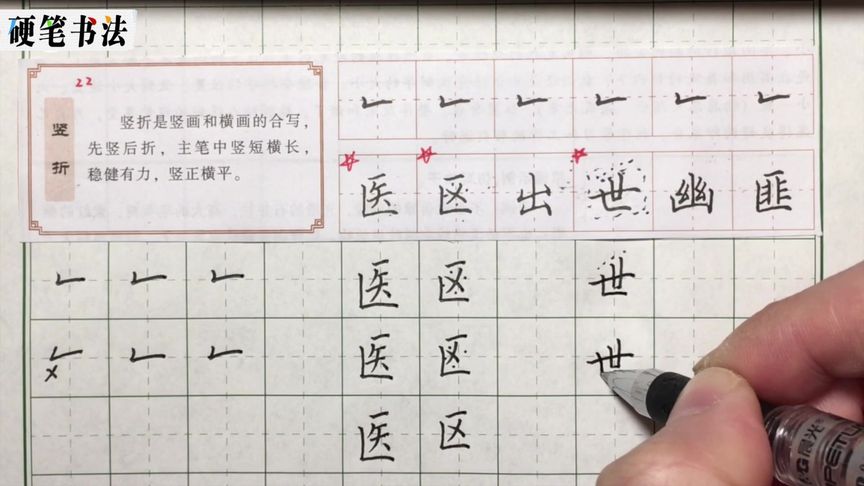 硬笔书法
22
竖折
竖折是竖画和横画的合写，
先竖后折，主笔中竖短横长，
稳健有力，竖正横平。
医 区 出 世 幽 匪
医 区 世
医 区 世
x
医 区
晨光